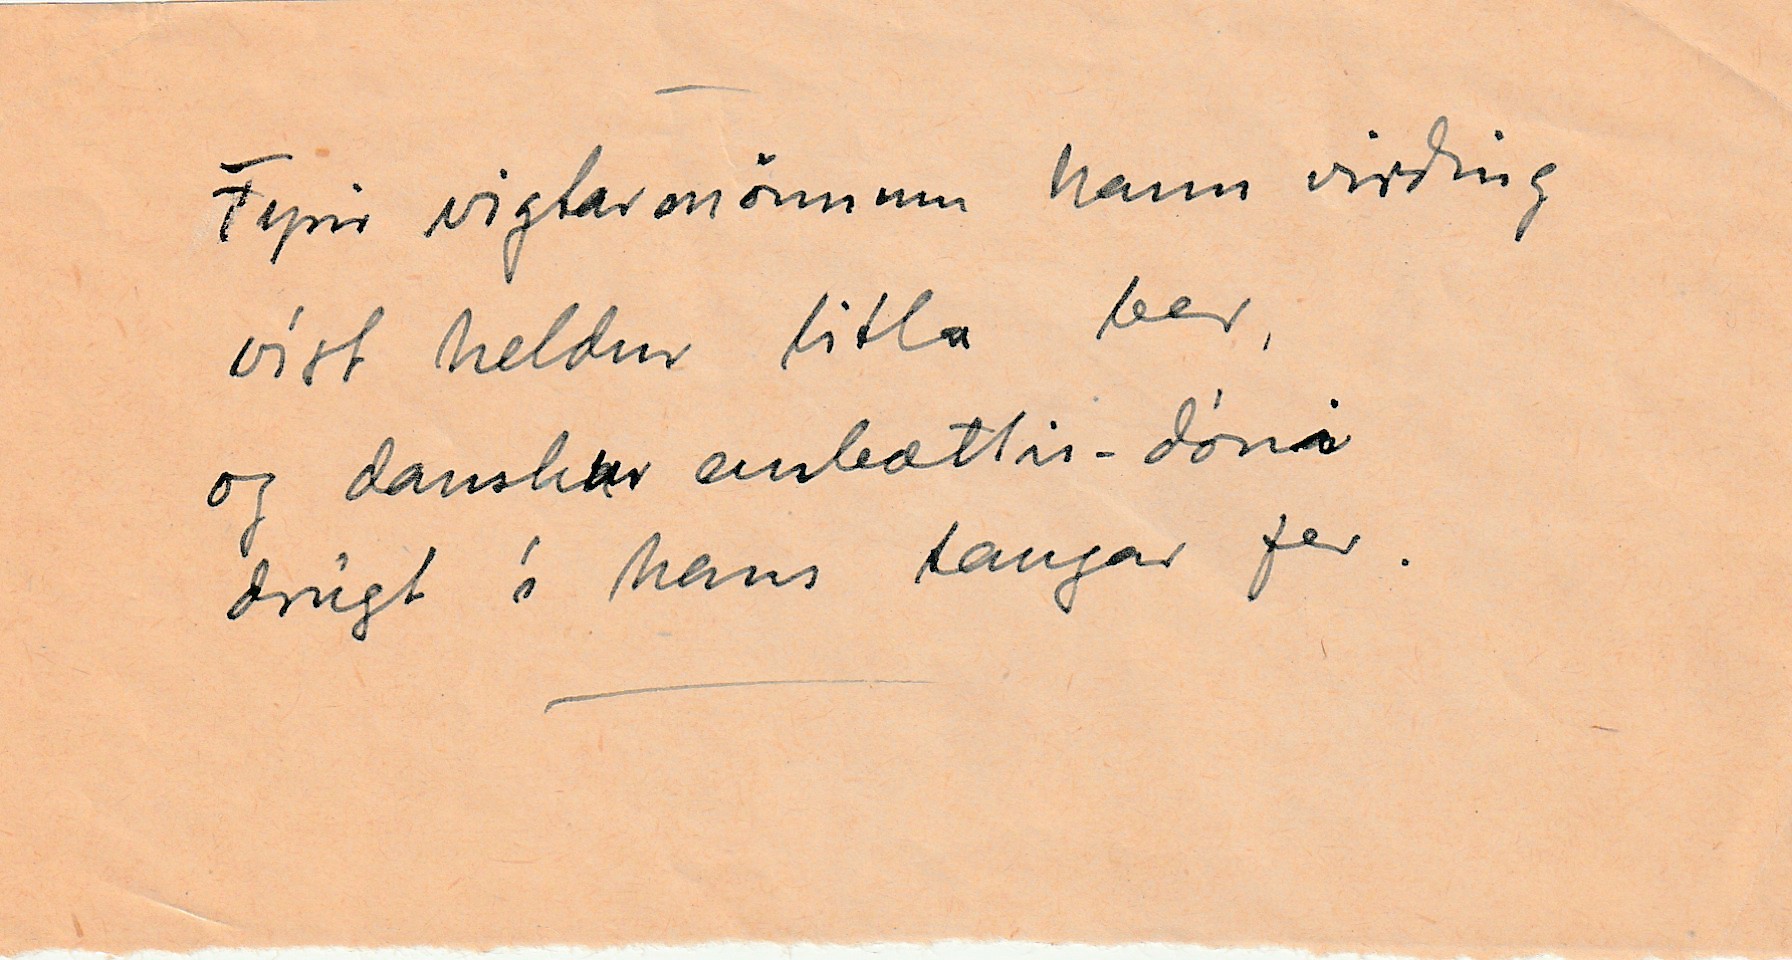 Fyrir vigtarmönnum hann virðing
víst heldur titla ber,
og danskur embættis-dóni
drúgt í hans taugar fer.